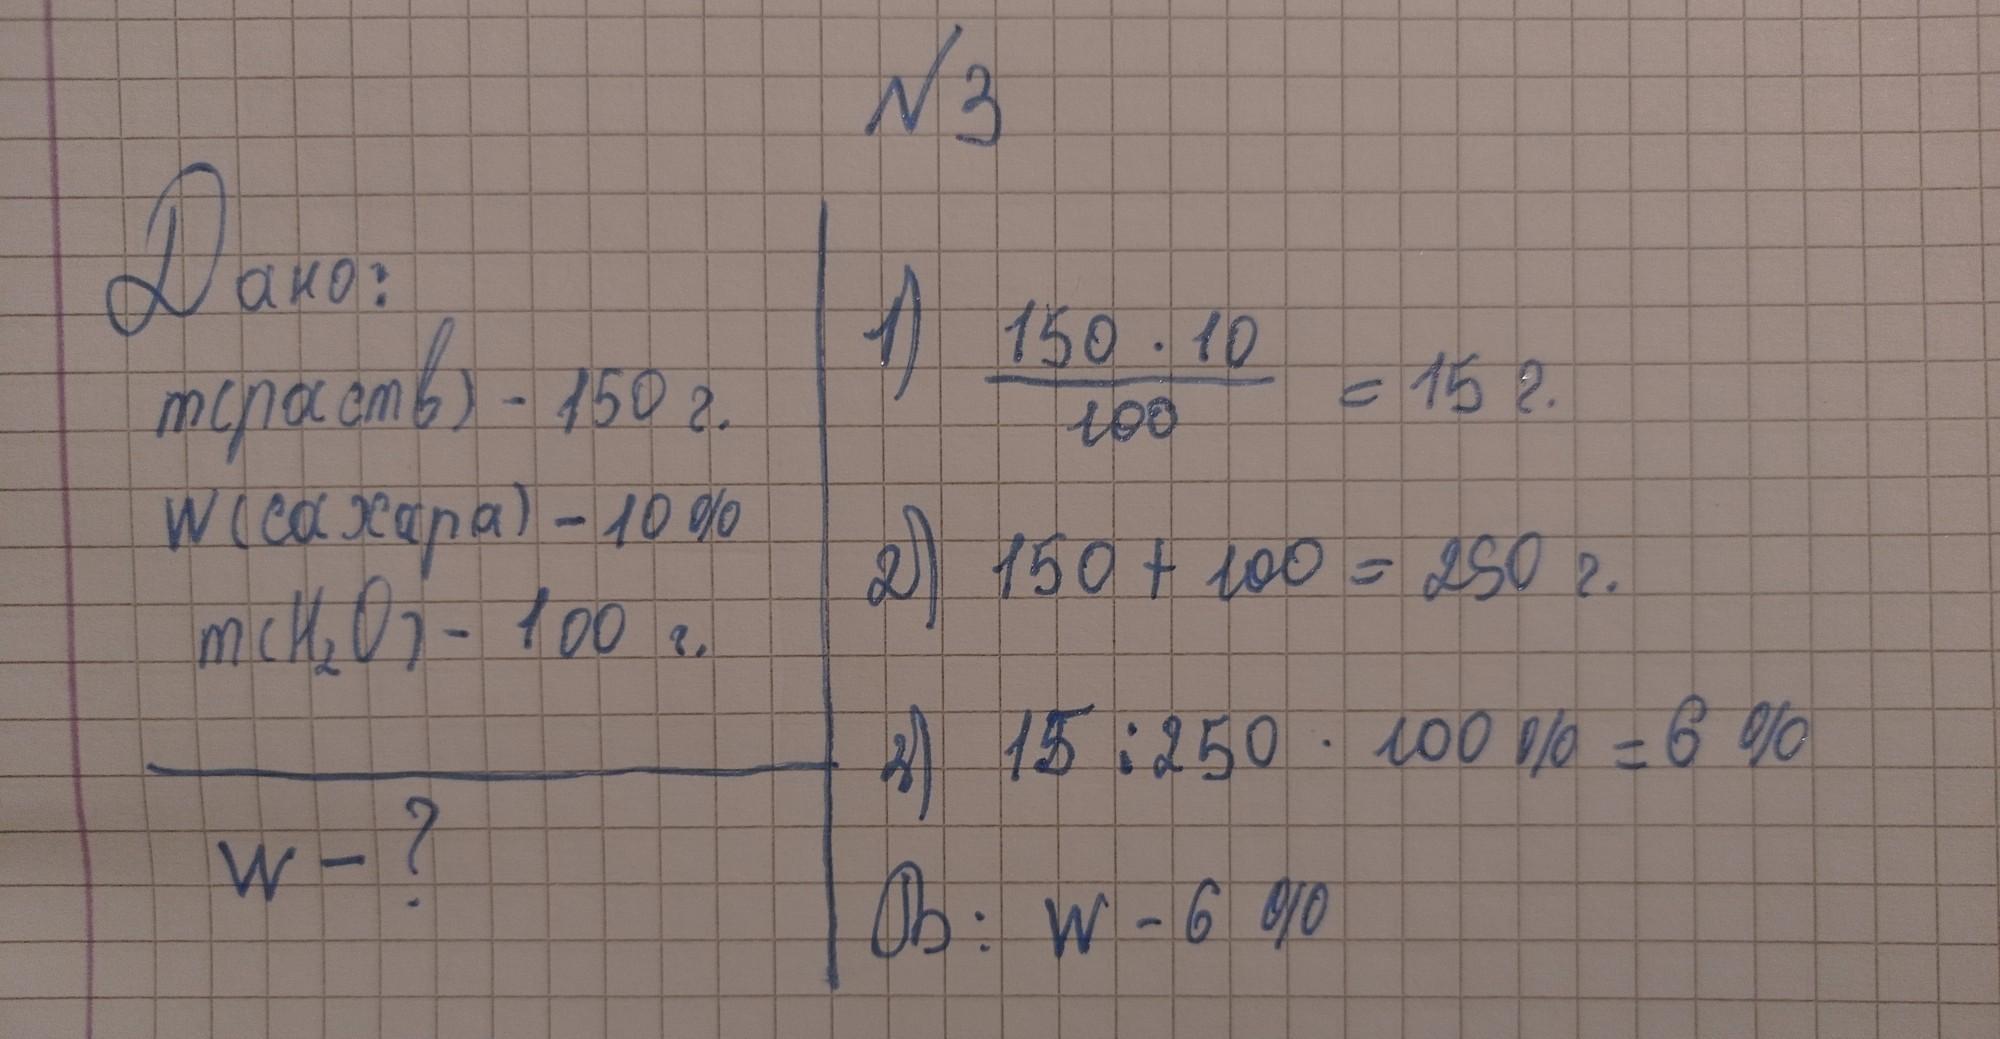 №3
Дано:
m(раств) - 150 г.
W(сахара) - 10%
m(H₂O) - 100 г.
W - ?
1) 150 · 10 / 100 = 15 г.
2) 150 + 100 = 250 г.
3) 15 : 250 · 100 % = 6 %
Отв: W - 6 %